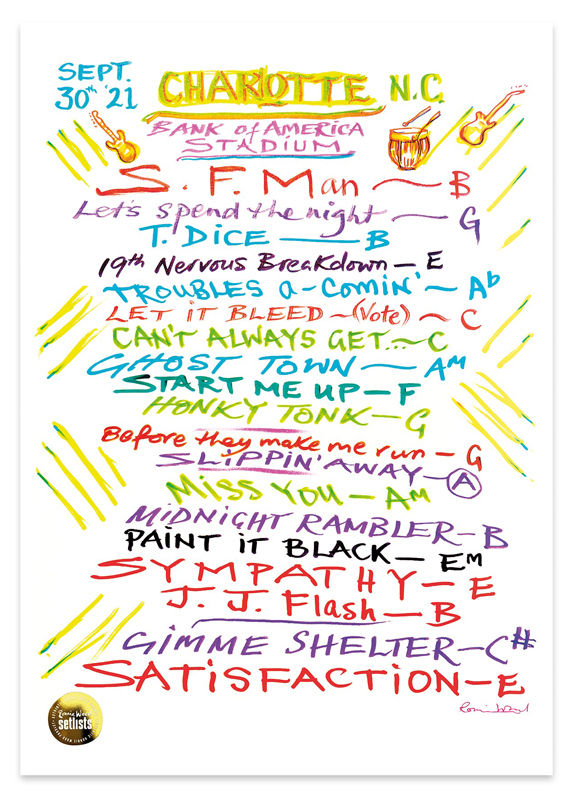 SEPT.
30th '21
CHARLOTTE N.C.
BANK of AMERICA
STADIUM
S. F. Man ~ B
Let's spend the night ~ G
T. DiCE — B
19th Nervous Breakdown — E
TROUBLES a-Comin' ~ Ab
LET iT BLEED ~ (Vote) ~ C
CAN'T ALWAYS GET... ~ C
GHOST TOWN — AM
START ME UP — F
HONKY TONK — G
Before they make me run — G
SLiPPiN' AWAY — A
MiSS YOU — AM
MiDNiGHT RAMBLER — B
PAiNT iT BLACK — EM
SYMPATHY — E
J. J. Flash — B
GiMME SHELTER — C#
SATiSFACTiON — E
Ronnie Wood
Ronnie Wood
setlists